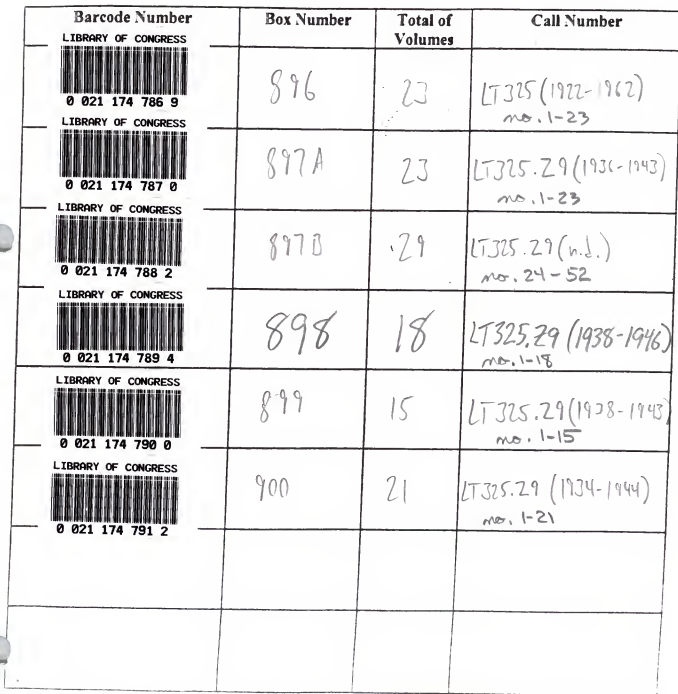 Barcode Number Box Number Total of Volumes Call Number
LIBRARY OF CONGRESS
0 021 174 786 9
896
23
LT325 (1922-1962)
no. 1-23
LIBRARY OF CONGRESS
0 021 174 787 0
897A
23
LT325.Z9 (1936-1943)
no. 1-23
LIBRARY OF CONGRESS
0 021 174 788 2
897B
29
LT325.Z9 (n.d.)
no. 24-52
LIBRARY OF CONGRESS
0 021 174 789 4
898
18
LT325.Z9 (1938-1946)
no. 1-18
LIBRARY OF CONGRESS
0 021 174 790 0
899
15
LT325.Z9 (1938-1943)
no. 1-15
LIBRARY OF CONGRESS
0 021 174 791 2
900
21
LT325.Z9 (1934-1944)
no. 1-21